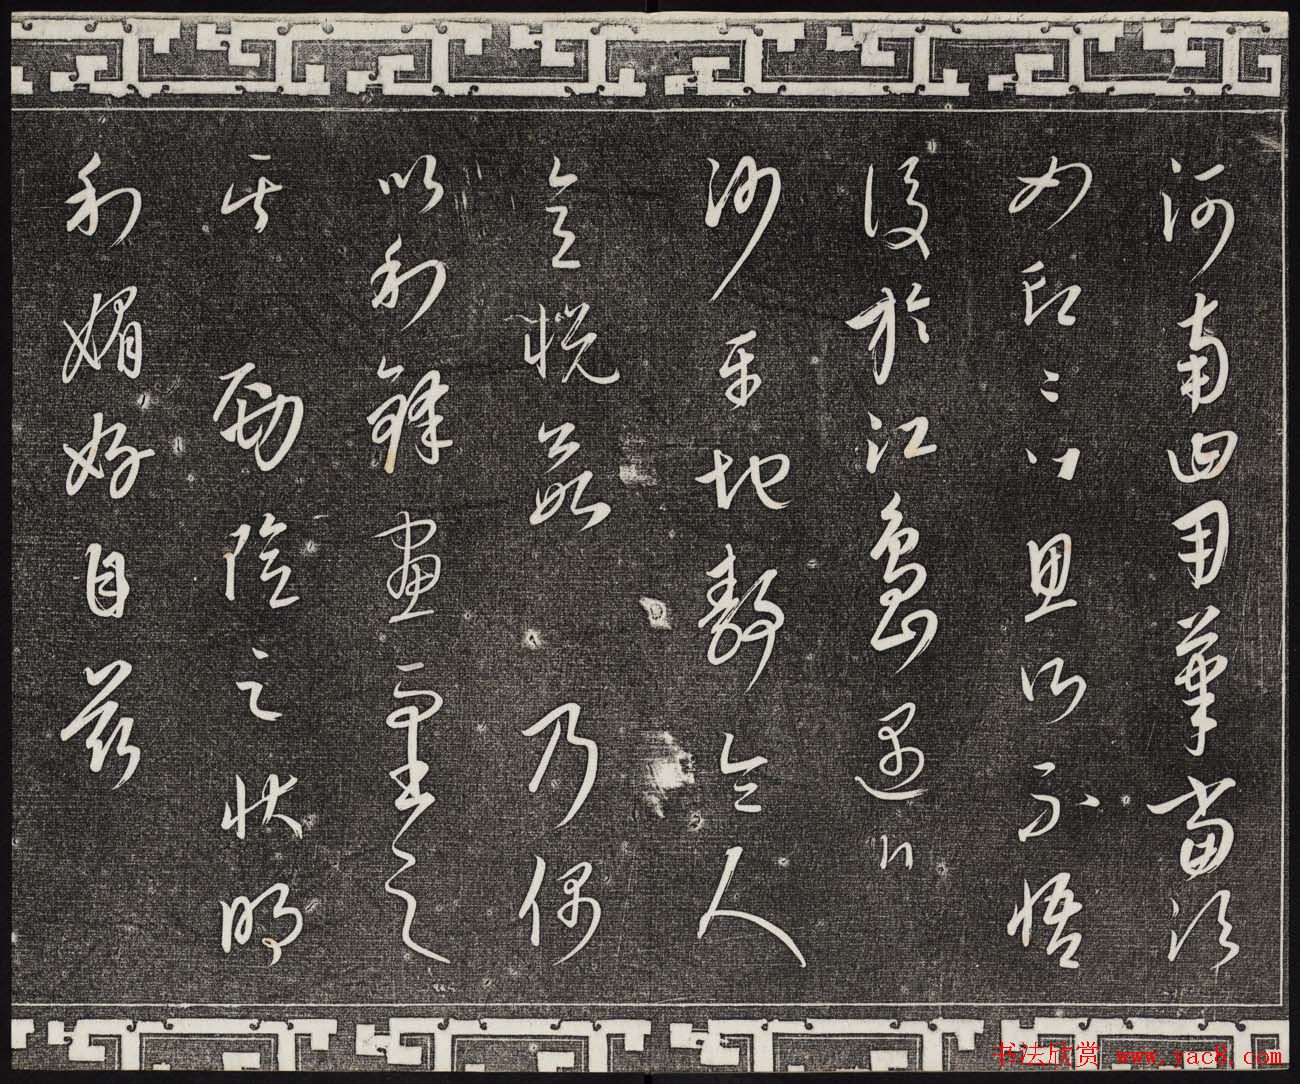 河南曰用筆當須
如印〻思所不悟
後於江島遇
沙平地靜令人
意悅乃偶
以利鋒畫而書之
其勁險之狀明
利媚好自茲
书法欣赏 www.yac8.com